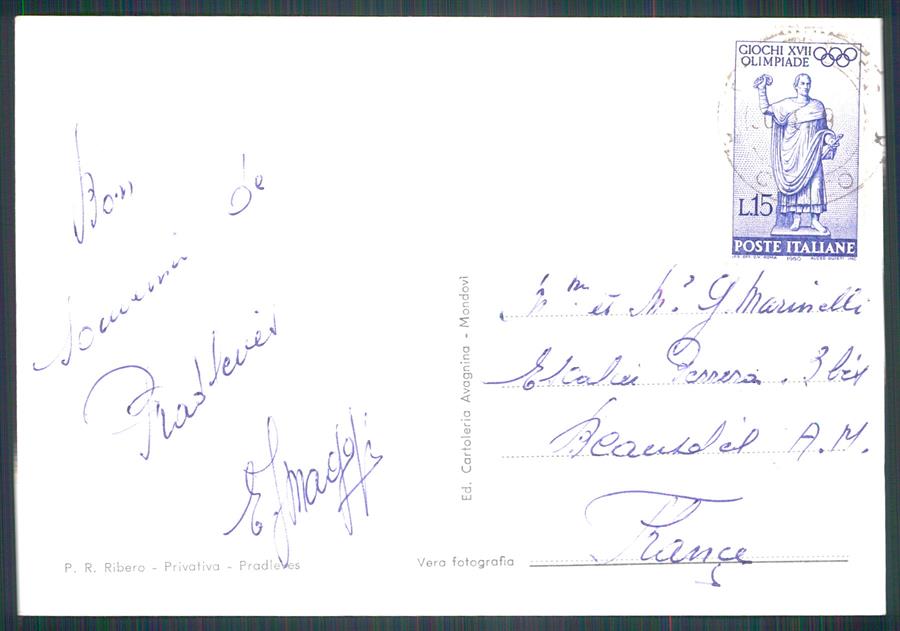 GIOCHI XVII
OLIMPIADE
L.15
POSTE ITALIANE
1960
Bon
Souvenir de
Pradleves
E J Maggi
Mme et Mr G Marinelli
3 bis
Beausoleil A.M.
France
Ed. Cartoleria Avagnina - Mondovì
P. R. Ribero - Privativa - Pradleves
Vera fotografia